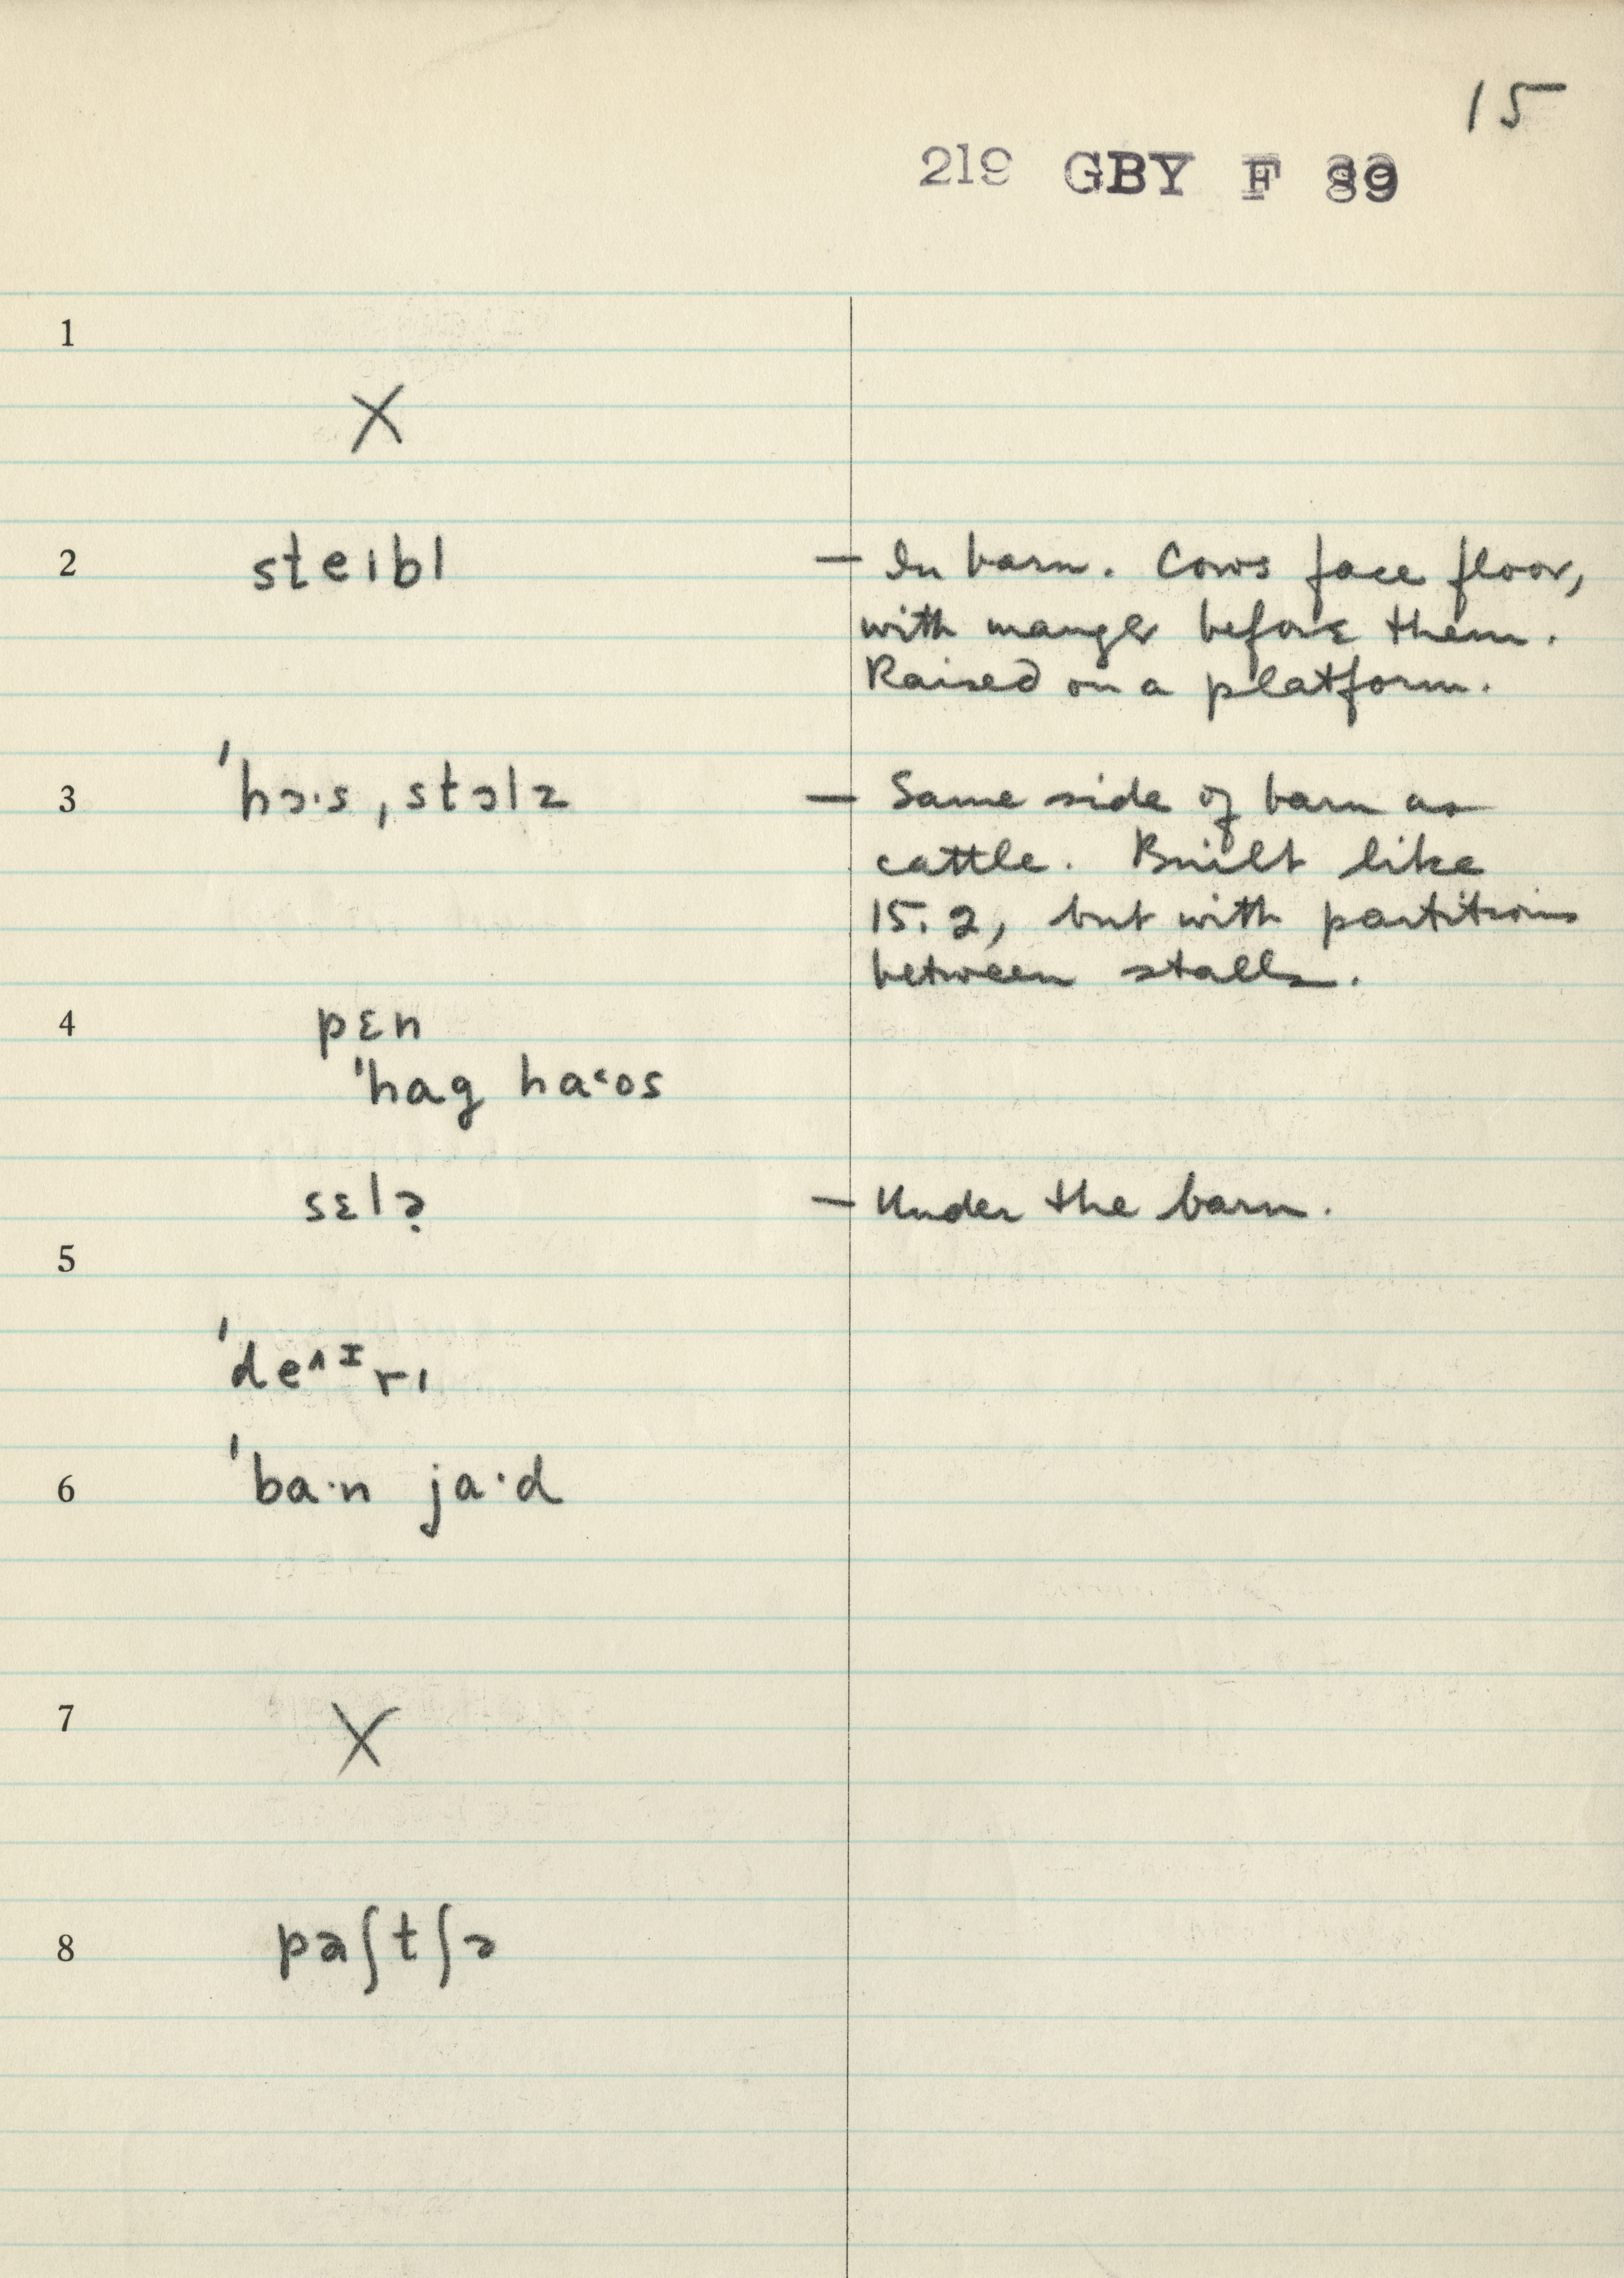 15
219 GBY F 89
1
X
2 steɪbl — In barn. Cows face floor,
with manger before them.
Raised on a platform.
3 ˈhɔ·s ˌstɔlz — Same side of barn as
cattle. Built like
15.2, but with partitions
between stalls.
4 pɛn
ˈhag haˑʊs
sɛlə̣ — Under the barn.
5
ˈde^ɪrɪ
6 ˈba·n ja·d
7 X
8 paʃtʃə